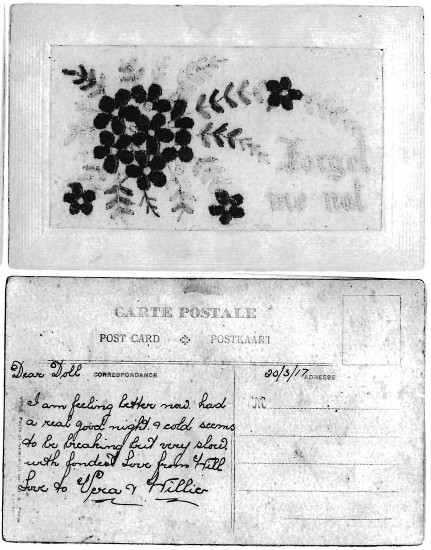 Forget
me not
CARTE POSTALE
POST CARD ✻ POSTKAART
Dear Doll CORRESPONDANCE
30/3/17 ADRESSE
I am feeling better now. had
a real good night & cold seems
to be breaking but very slow.
with fondest Love from Will
Love to Vera & Willie